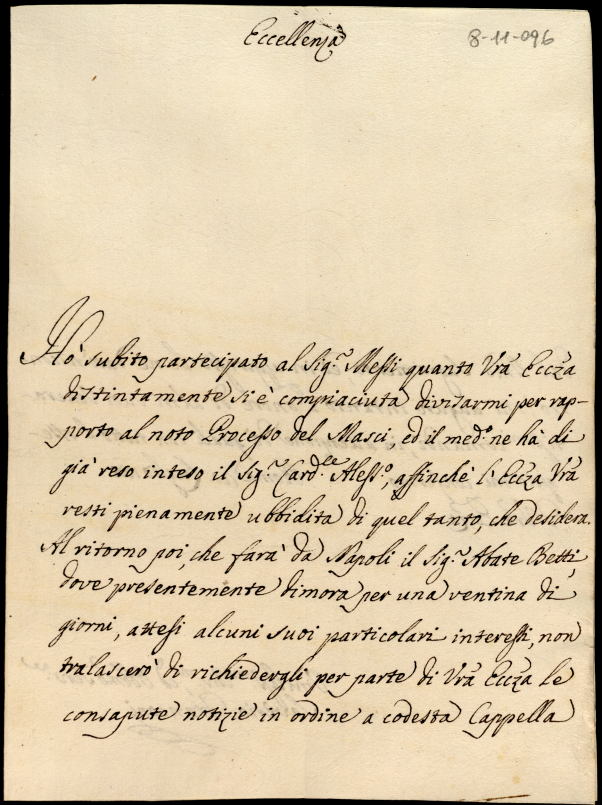 Eccellenza
8-11-096
Hò subito partecipato al Sig.r Messi quanto Vrã Eccza
distintamente si è compiaciuta divisarmi per rap-
porto al noto Processo del Masci, ed il med.o ne hà di
già reso inteso il Sig.r Card.le Aless.o, affinchè l'Eccza Vrã
resti pienamente ubbidita di quel tanto, che desidera.
Al ritorno poi, che farà da Napoli il Sig.r Abate Betti,
dove presentemente dimora per una ventina di
giorni, attesi alcuni suoi particolari interessi, non
tralascerò di richiedergli per parte di Vrã Eccza le
consapute notizie in ordine a codesta Cappella